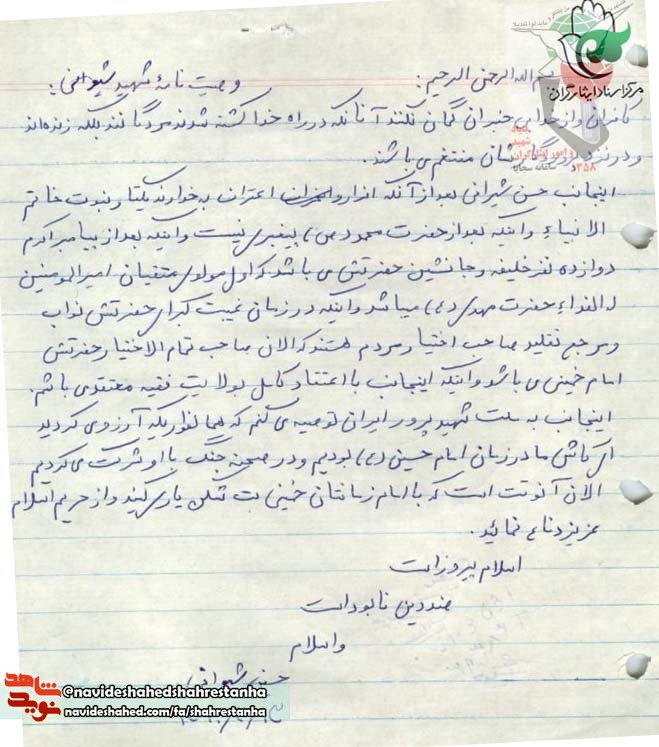 بسم الله الرحمن الرحیم: وصیت نامهٔ شهید شیرانی:
کافران از خدا بی خبران گمان نکنند آنانکه در راه خدا کشته شدند مردگانند بلکه زنده‌اند
و در نزد پروردگارشان متنعم می باشند.
اینجانب حسن شیرانی بعد از آنکه اقرار و اعتراف به خداوند یکتا و نبوت خاتم
الانبیاء و اینکه بعد از حضرت محمود (ص) پیغمبری نیست و اینکه بعد از پیامبر اکرم
دوازده نفر خلیفه و جانشین حضرتش می باشد که اول مولای متقیان امیرالمومنین
له الفداء حضرت مهدی (ع) میباشد و اینکه در زمان غیبت کبرای حضرتش نواب
و مرجع تقلید صاحب اختیار مردم هستند که الان صاحب تمام الاختیار حضرتش
امام خمینی می باشد و اینکه اینجانب با اعتقاد کامل بولایت فقیه معتقد می باشم.
اینجانب به ملت شهید پرور ایران توصیه می کنم که همانطوریکه آرزو می کردید
ای کاش ما در زمان امام حسین (ع) بودیم و در صحنه جنگ با او شرکت می کردیم
الان آنوقت است که با امام زمانتان خمینی بت شکن یاری کنید و از حریم اسلام
عزیز دفاع نمائید.
اسلام پیروز است
ضد دین نابود است
والسلام
حسن شیرانی
مرکز اسناد ایثارگران
بنیاد
شهید
و امور ایثارگران
۱۳۵۸
سامانه سجایا
نوید شاهد
@navideshahedshahrestanha
navideshahed.com/fa/shahrestanha